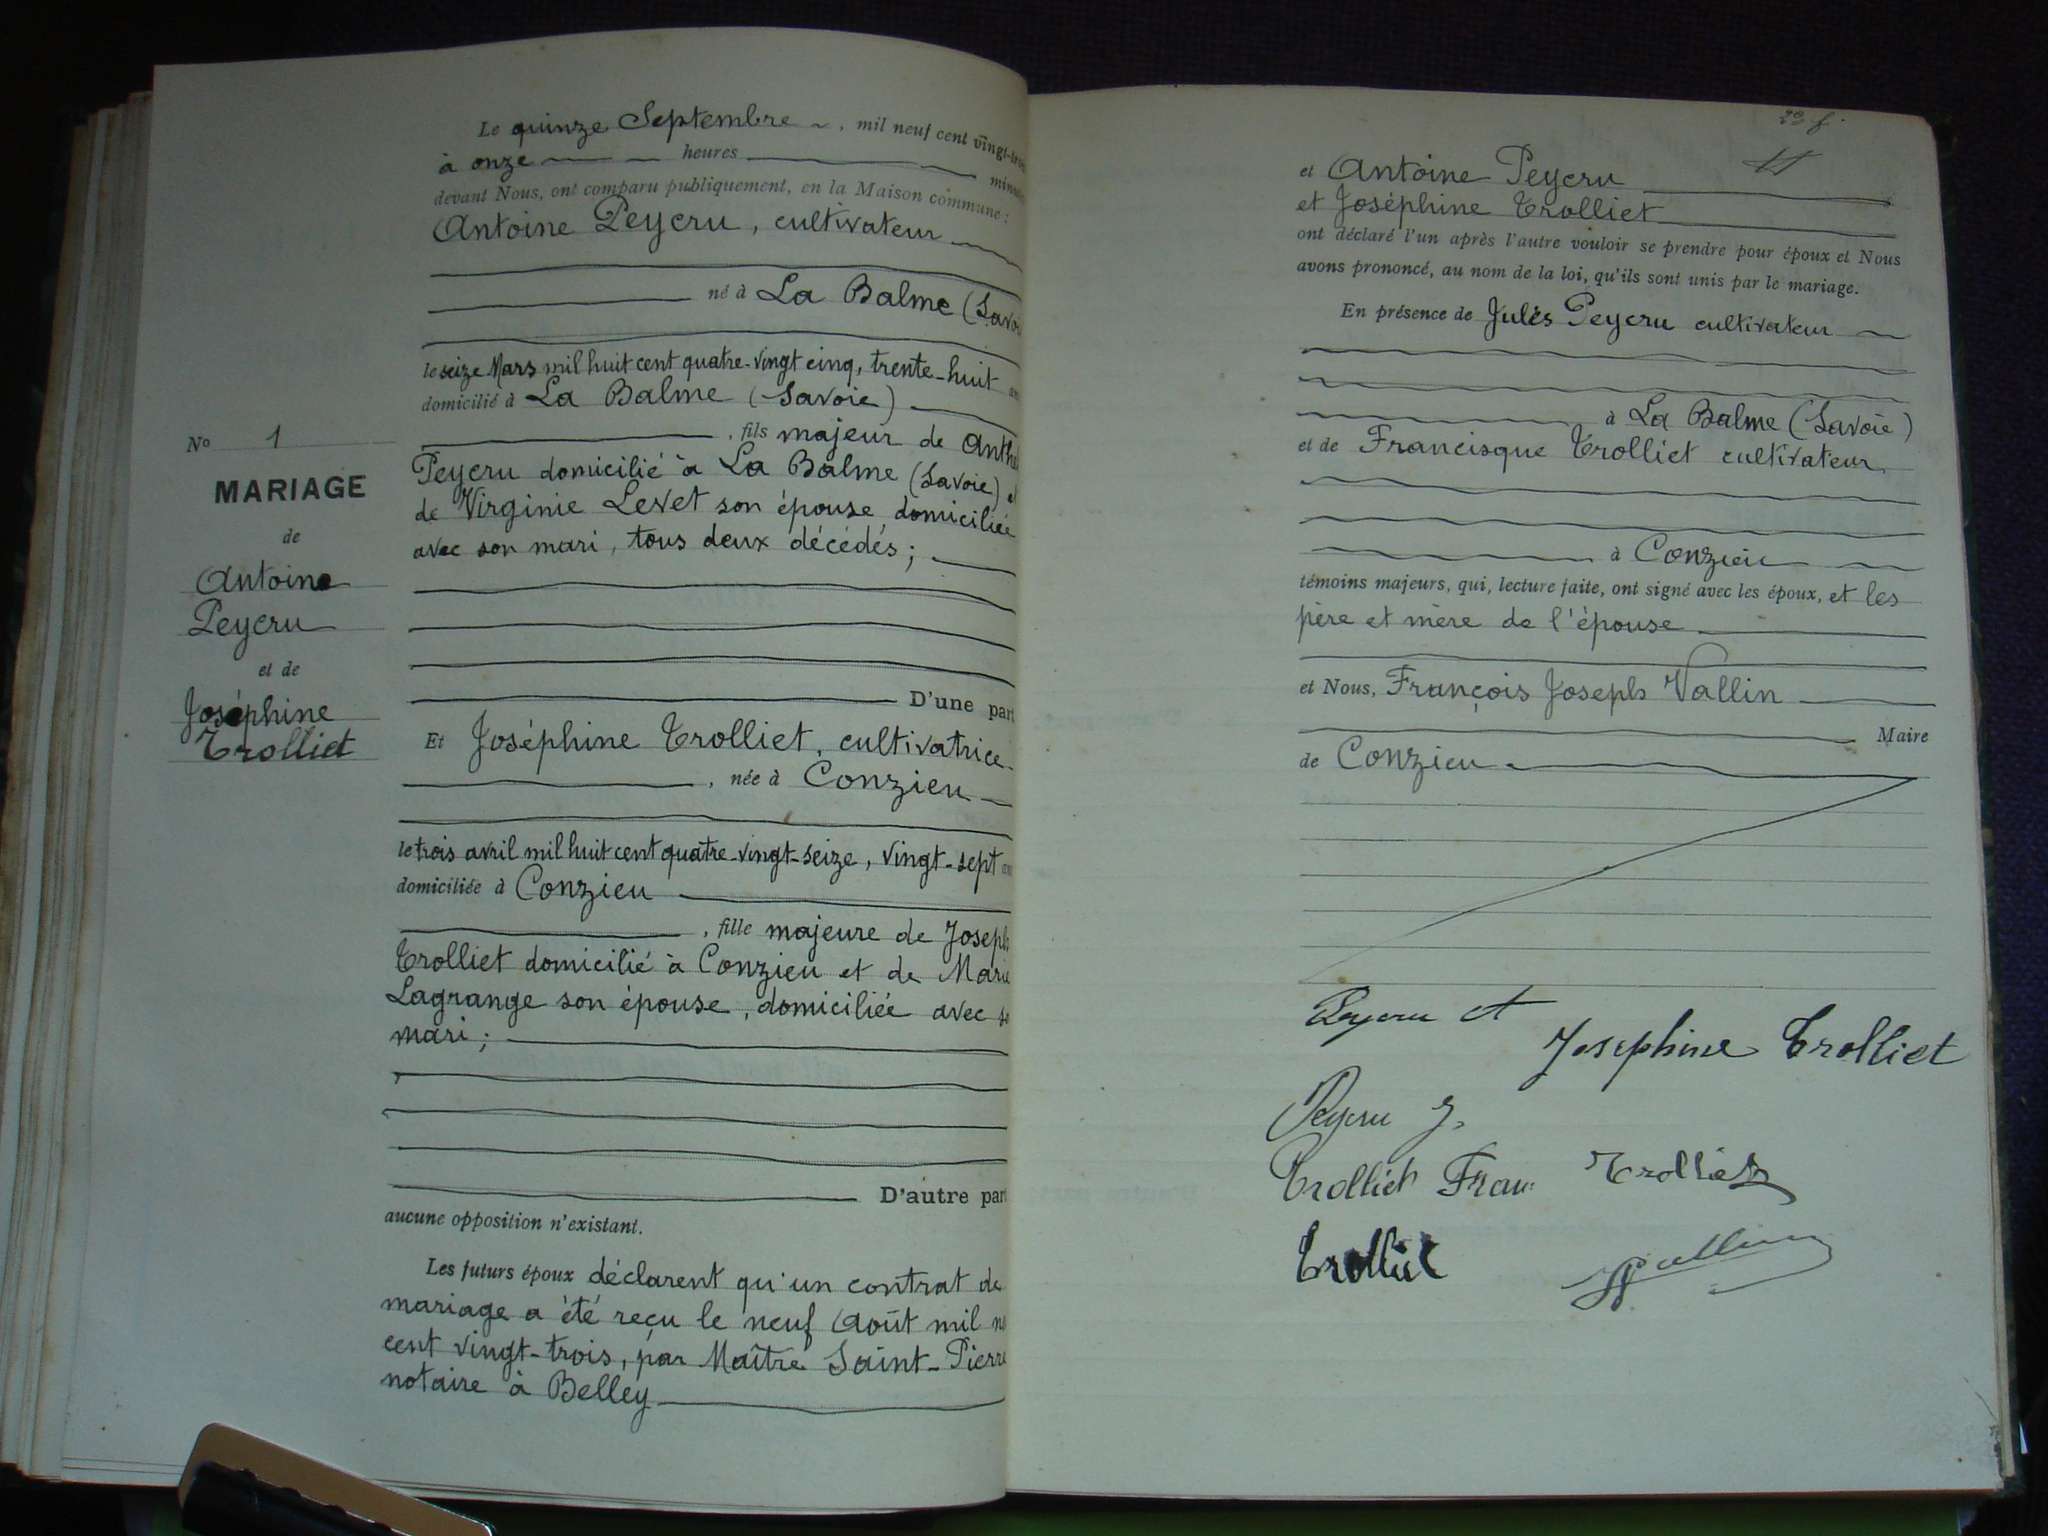 Le quinze Septembre, mil neuf cent vingt-trois
à onze heures minutes
devant Nous, ont comparu publiquement, en la Maison commune :
Antoine Peycru, cultivateur
né à La Balme (Savoie
le seize Mars mil huit cent quatre-vingt cinq, trente-huit ans
domicilié à La Balme (Savoie)
, fils majeur de Anth
Peycru domicilié à La Balme (Savoie) et
de Virginie Levet son épouse, domiciliée
avec son mari, tous deux décédés;
D'une part
Et Joséphine Trolliet, cultivatrice
, née à Conzieu
le trois avril mil huit cent quatre-vingt-seize, vingt-sept ans
domiciliée à Conzieu
, fille majeure de Joseph
Trolliet domicilié à Conzieu et de Marie
Lagrange son épouse, domiciliée avec so
mari;
D'autre part
aucune opposition n'existant.
Les futurs époux déclarent qu'un contrat de
mariage a été reçu le neuf Août mil n
cent vingt-trois, par Maître Saint-Pierre
notaire à Belley
No 1
MARIAGE
de
Antoine
Peycru
et de
Joséphine
Trolliet
et Antoine Peycru
et Joséphine Trolliet
ont déclaré l'un après l'autre vouloir se prendre pour époux et Nous
avons prononcé, au nom de la loi, qu'ils sont unis par le mariage.
En présence de Jules Peycru cultivateur
à La Balme (Savoie)
et de Francisque Trolliet cultivateur
à Conzieu
témoins majeurs, qui, lecture faite, ont signé avec les époux, et les
père et mère de l'épouse
et Nous, François Joseph Vallin
Maire
de Conzieu
Peycru A
Josephine Trolliet
Peycru J.
Trolliet Fran Trolliet
Trolliet
Vallin